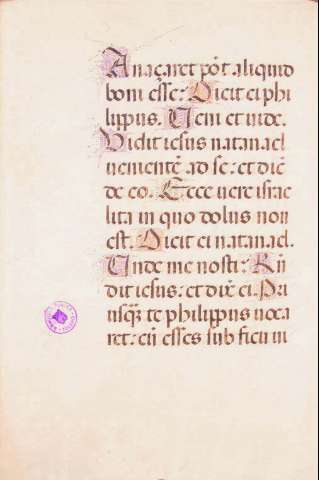 A naçaret põt aliquid
boni esse: Dicit ei phi
lippus. Veni et vide.
Vidit iesus natanael
venientẽ ad se: et diẽ
de eo. Ecce vere israe
lita in quo dolus non
est. Dicit ei natanael.
Unde me nosti: Rñ
dit iesus: et dix̃ ei. Pri
usq̃ te philippus voca
ret: cũ esses sub ficu vi